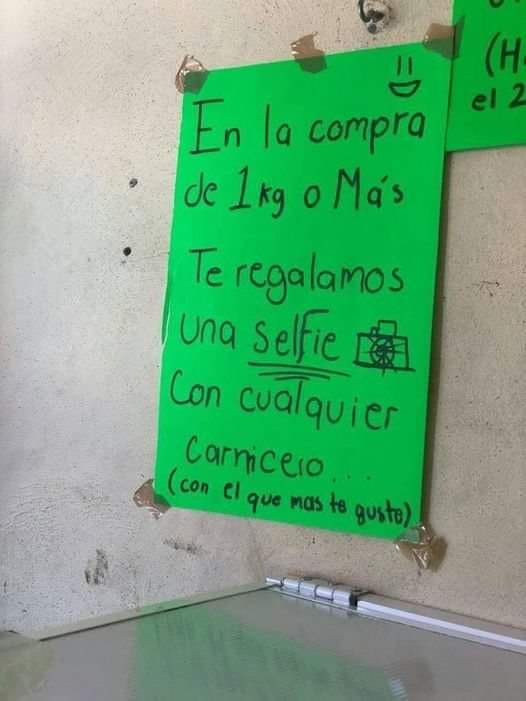 En la compra
de 1kg o Más
Te regalamos
una selfie
Con cualquier
carnicero...
(con el que mas te guste)
(H
el 2